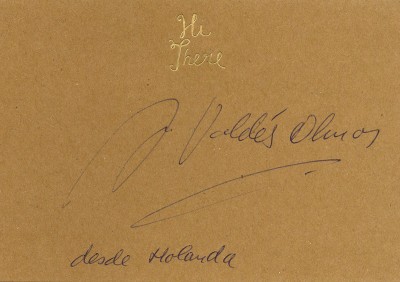 Hi
There
Valdés Olmos
desde Holanda